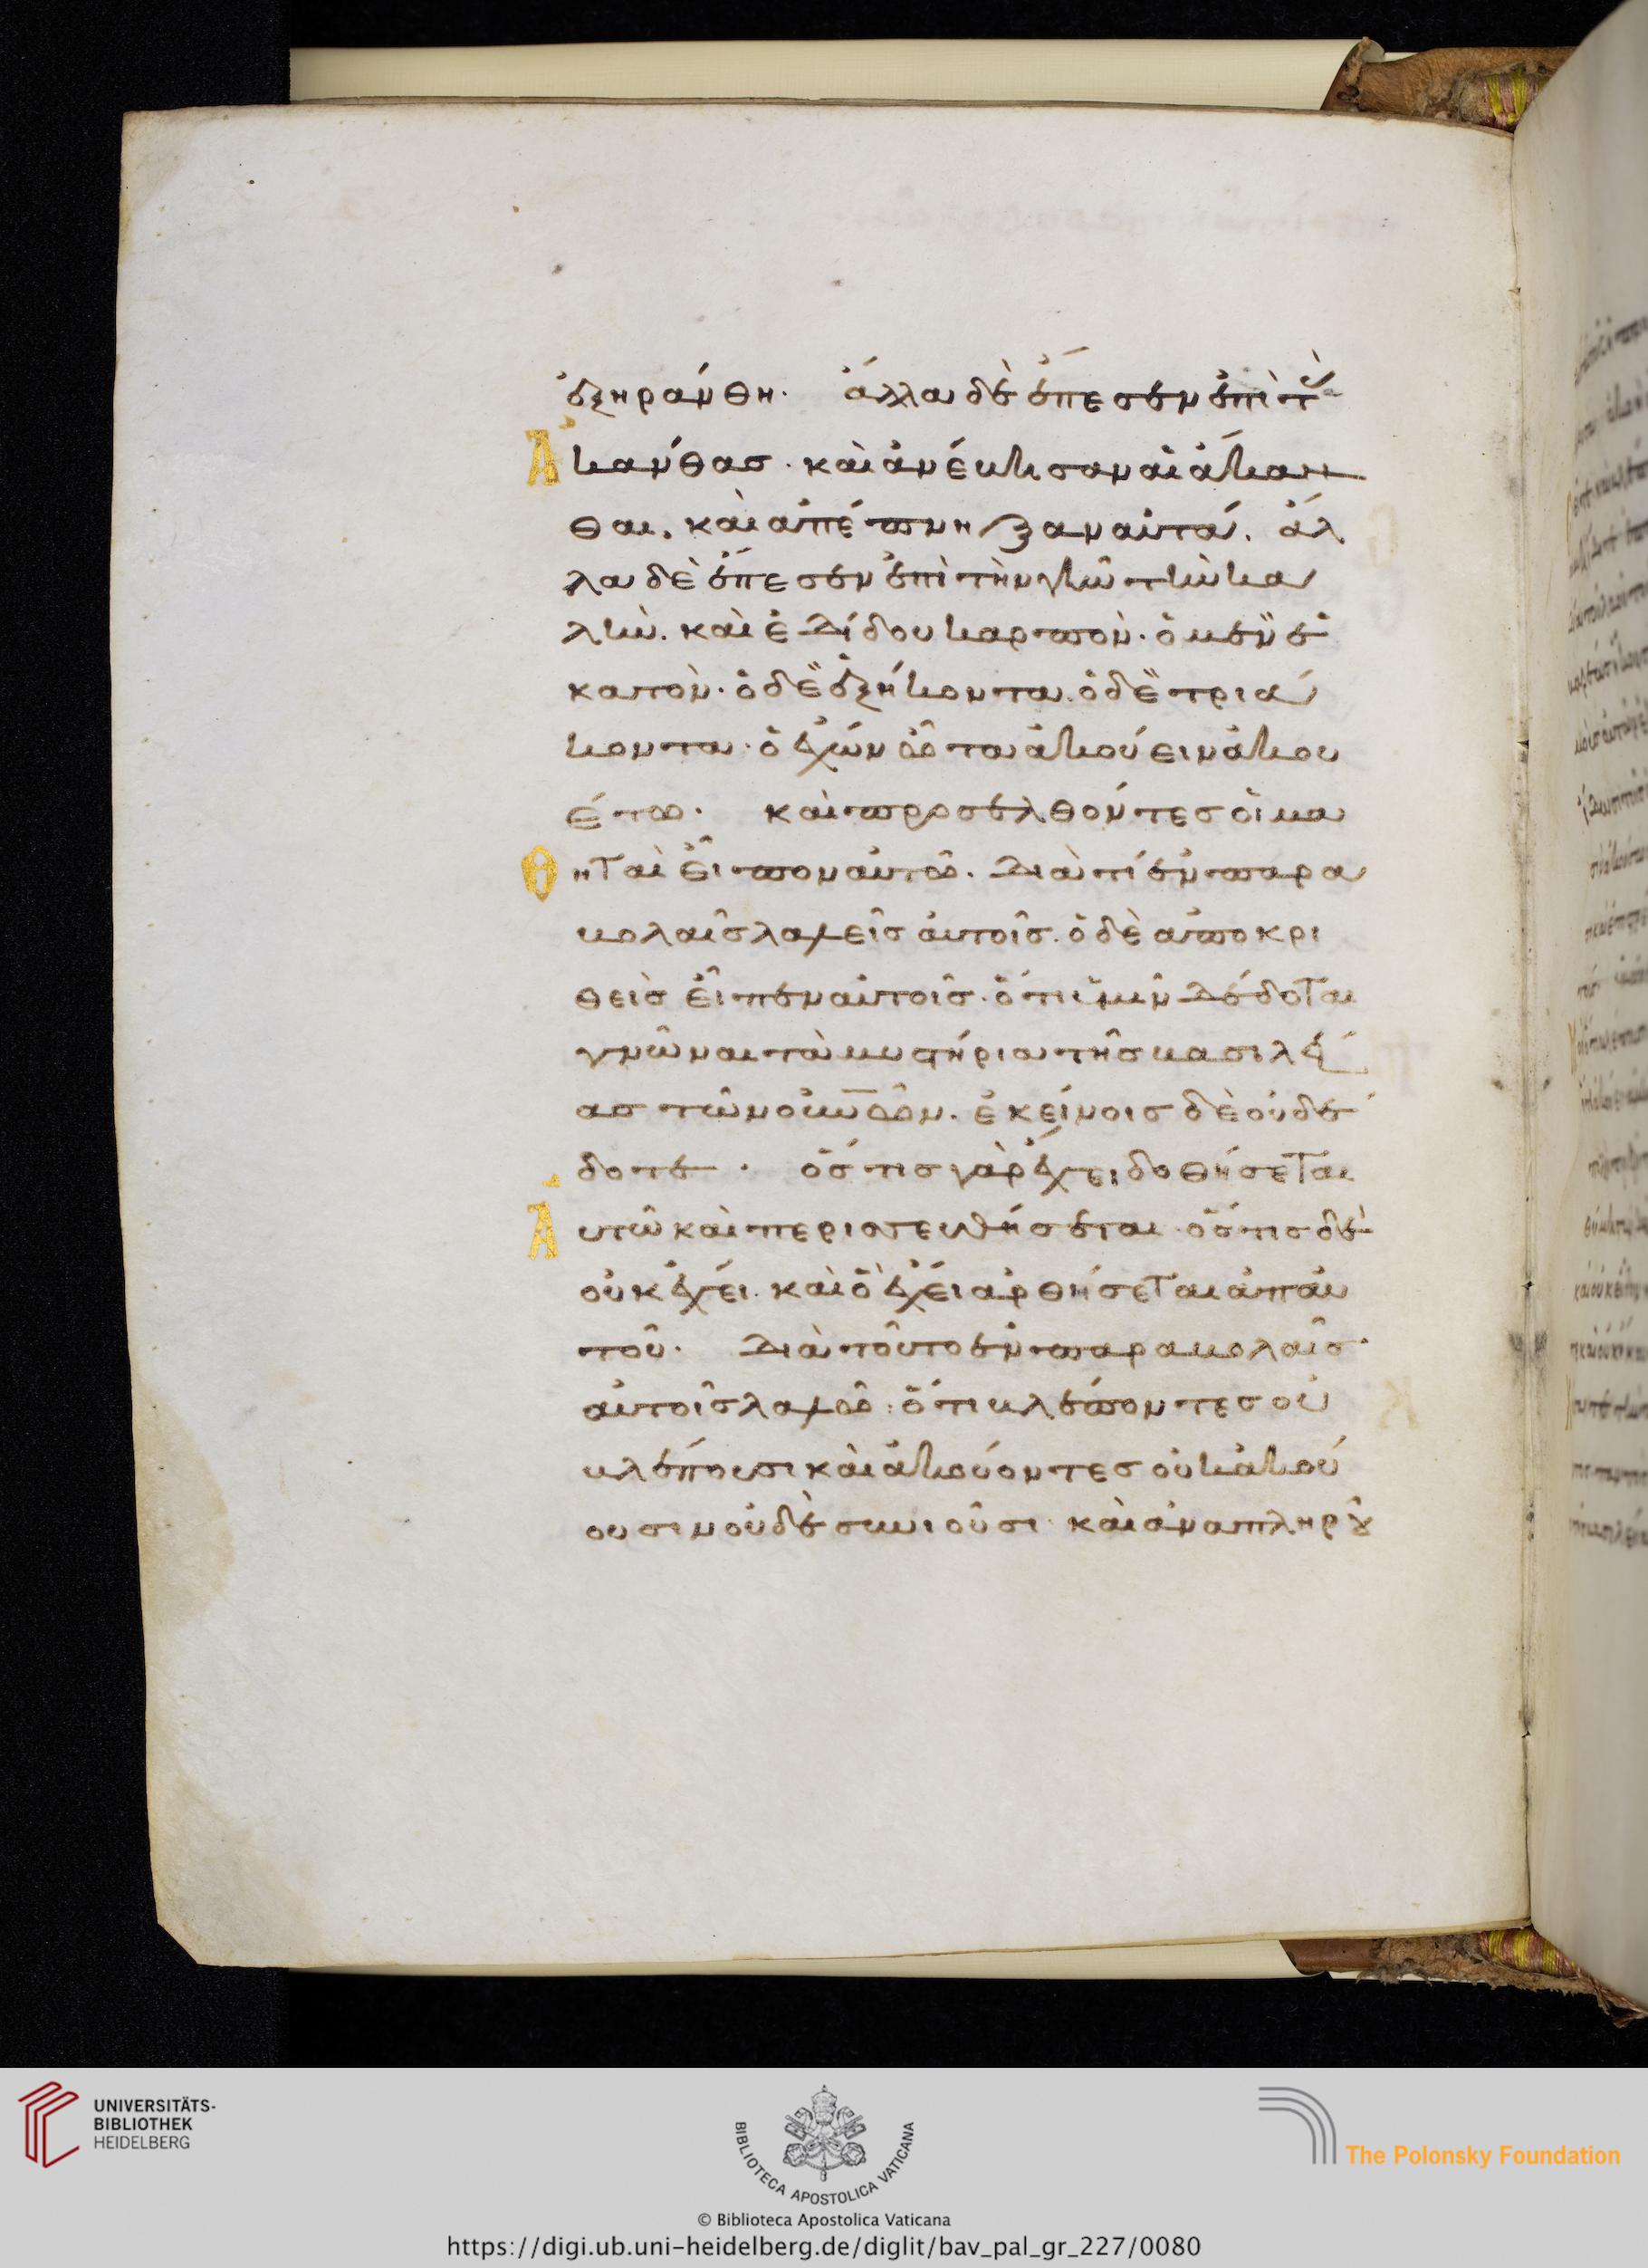 ἐξηράνθη. ἄλλα δὲ ἔπεσεν ἐπὶ τ(ὰς)
Ἀκάνθας. καὶ ἀνέβησαν αἱ ἄκαν
θαι. καὶ ἀπέπνηξαν αὐτά. ἄλ
λα δὲ ἔπεσεν ἐπὶ τὴν γῆν τὴν κα
λήν. καὶ ἐδίδου καρπὸν. ὁ μὲν ἑ
κατὸν. ὁ δὲ ἑξήκοντα. ὁ δὲ τριά
κοντα. ὁ ἔχων ὦτα ἀκούειν ἀκου
έτω. καὶ προσελθόντες οἱ μα
θηταὶ εἶπον αὐτῶ. διὰ τί ἐν παρα
βολαῖς λαλεῖς αὐτοῖς. ὁ δὲ ἀποκρι
θεὶς εἶπεν αὐτοῖς. ὅτι ὑμῖν δέδοται
γνῶναι τὰ μυστήρια τῆς βασιλεί
ας τῶν οὐ̅νῶν. ἐκείνοις δὲ οὐ δέ
δοται. ὅστις γὰρ ἔχει, δοθήσεται
Αὐτῶ καὶ περισσευθήσεται. ὅστις δὲ
οὐκ ἔχει. καὶ ὃ ἔχει ἀρθήσεται ἀπ' αὐ
τοῦ. διὰ τοῦτο ἐν παραβολαῖς
αὐτοῖς λαλῶ: ὅτι βλέποντες οὐ
βλέπουσι καὶ ἀκούοντες οὐκ ἀκού
ουσιν οὐδὲ συνιοῦσι. καὶ ἀναπληροῦ
UNIVERSITÄTS-
BIBLIOTHEK
HEIDELBERG
BIBLIOTECA APOSTOLICA VATICANA
The Polonsky Foundation
© Biblioteca Apostolica Vaticana
https://digi.ub.uni-heidelberg.de/diglit/bav_pal_gr_227/0080